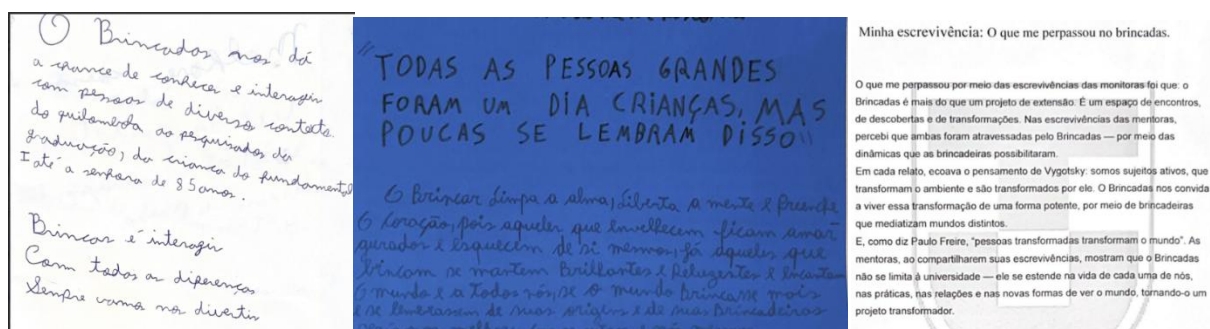 O Brincadas nos dá
a chance de conhecer e interagir
com pessoas de diversos contexto
do quilombola ao pesquisador da
graduação, da criança do fundamental
I até a senhora de 85 anos.
Brincar é interagir
Com todas as diferenças
Sempre vamos nos divertir
"TODAS AS PESSOAS GRANDES
FORAM UM DIA CRIANÇAS, MAS
POUCAS SE LEMBRAM DISSO"
O Brincar limpa a alma, liberta a mente e preenche
O Coração, pois aqueles que envelhecem ficam amar
gurados e esquecem de si mesmos, já aqueles que
brincam se mantem Brilhantes e Relugentes e encantam
O mundo e a Todos nós, se o mundo brincasse mais
e se lembrassem de suas origens e de suas Brincadeiras
Minha escrevivência: O que me perpassou no brincadas.
O que me perpassou por meio das escrevivências das monitoras foi que: o
Brincadas é mais do que um projeto de extensão. É um espaço de encontros,
de descobertas e de transformações. Nas escrevivências das mentoras,
percebi que ambas foram atravessadas pelo Brincadas — por meio das
dinâmicas que as brincadeiras possibilitaram.
Em cada relato, ecoava o pensamento de Vygotsky: somos sujeitos ativos, que
transformam o ambiente e são transformados por ele. O Brincadas nos convida
a viver essa transformação de uma forma potente, por meio de brincadeiras
que mediatizam mundos distintos.
E, como diz Paulo Freire, "pessoas transformadas transformam o mundo". As
mentoras, ao compartilharem suas escrevivências, mostram que o Brincadas
não se limita à universidade — ele se estende na vida de cada uma de nós,
nas práticas, nas relações e nas novas formas de ver o mundo, tornando-o um
projeto transformador.